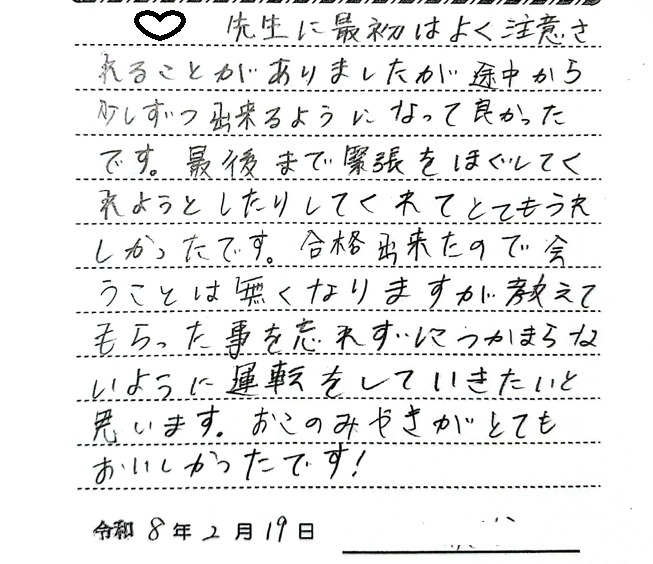 先生に最初はよく注意さ
れることがありましたが途中から
少しずつ出来るようになって良かった
です。最後まで緊張をほぐしてく
れようとしたりしてくれてとてもうれ
しかったです。合格出来たので会
うことは無くなりますが教えて
もらった事を忘れずにつかまらな
いように運転をしていきたいと
思います。おこのみやきがとても
おいしかったです!
令和8年2月19日